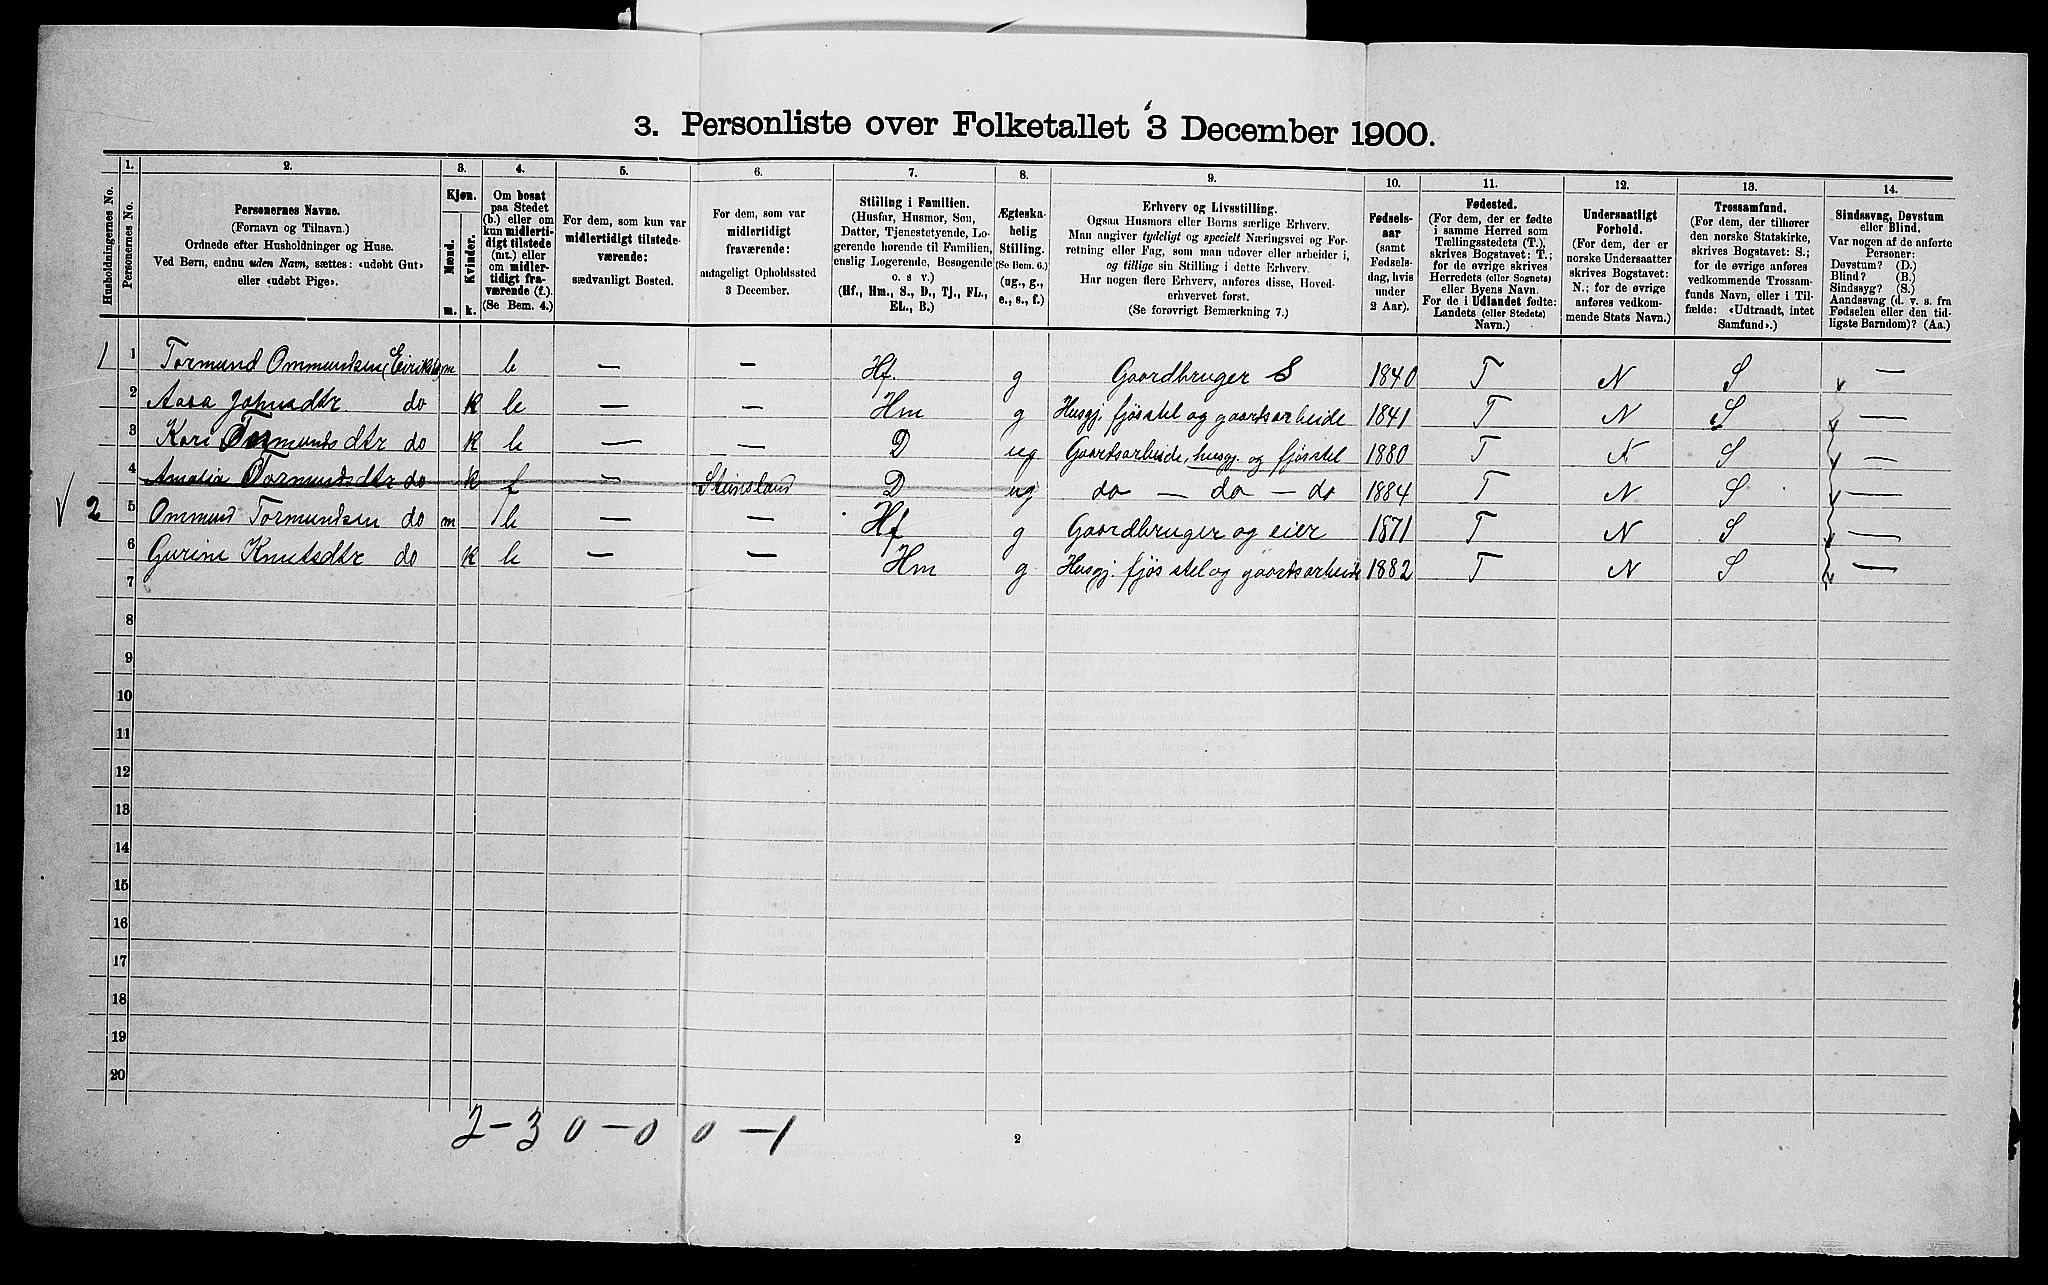 3. Personliste over Folketallet 3 December 1900.
Husholdningernes No.
1.
Personernes No.
2.
Personernes Navne.
(Fornavn og Tilnavn.)
Ordnede efter Husholdninger og Huse.
Ved Børn, endnu uden Navn, sættes: «udøbt Gut»
eller «udøbt Pige».
3.
Kjøn.
Mænd.
Kvinder.
m.
k.
4.
Om bosat
paa Stedet
(b.) eller om
kun midlerti-
digt tilstede
(mt.) eller
om midler-
tidigt fra-
værende (f.).
(Se Bem. 4.)
5.
For dem, som kun var
midlertidigt tilstede-
værende:
sædvanligt Bosted.
6.
For dem, som var
midlertidigt
fraværende:
antageligt Opholdssted
3 December.
7.
Stilling i Familien.
(Husfar, Husmor, Søn,
Datter, Tjenestetyende, Lo-
gerende hørende til Familien,
enslig Logerende, Besøgende
o. s v.)
(Hf., Hm., S., D., Tj., FL.,
EL., B.)
8.
Ægteska-
belig
Stilling.
(Se Bem. 6.)
(ug., g.,
e., s., f.)
9.
Erhverv og Livsstilling.
Ogsaa Husmors eller Børns særlige Erhverv.
Man angiver tydeligt og specielt Næringsvei og For-
retning eller Fag, som man udøver eller arbeider i,
og tillige sin Stilling i dette Erhverv.
Har nogen flere Erhverv, anføres disse, Hoved-
erhvervet først.
(Se forøvrigt Bemærkning 7.)
10.
Fødsels-
aar
(samt
Fødsels-
dag, hvis
under
2 Aar).
11.
Fødested.
(For dem, der er fødte
i samme Herred som
Tællingsstedets (T.),
skrives Bogstavet: T.;
for de øvrige skrives
Herredets (eller Sognets)
eller Byens Navn.
For de i Udlandet fødte:
Landets (eller Stedets)
Navn.)
12.
Undersaatligt
Forhold.
(For dem, der er
norske Undersaatter
skrives Bogstavet:
N.; for de øvrige
anføres vedkom-
mende Stats Navn.)
13.
Trossamfund.
(For dem, der tilhører
den norske Statskirke,
skrives Bogstavet: S.;
for de øvrige anføres
vedkommende Trossam-
funds Navn, eller i Til-
fælde: «Udtraadt, intet
Samfund».)
14.
Sindssvag, Døvstum
eller Blind.
Var nogen af de anførte
Personer:
Døvstum? (D.)
Blind? (B.)
Sindssyg? (S.)
Aandssvag (d. v. s. fra
Fødselen eller den tid-
ligste Barndom)? (Aa.)
1 1 Tormund Ommundsen m b — — Hf. g Gaardbruger S 1840 T N S —
2 Aasa Johnsdtr do k b — — Hm g Husgj. fjøsstel og gaardsarbeide 1841 T N S —
3 Kari Tormundsdtr do k b — — D ug Gaardsarbeide, husgj. og fjøsstel 1880 T N S —
4 Amalia Tormundsdtr do k f — Steinsland D ug do — do — do 1884 T N S —
2 5 Ommund Tormundsen do m b — — Hf g Gaardbruger og eier 1871 T N S —
6 Gurine Knutsdtr do k b — — Hm g Husgj. fjøsstel og gaardsarbeide 1882 T N S —
7
8
9
10
11
12
13
14
15
16
17
18
19
20
2 – 3 0 – 0 0 – 1
2